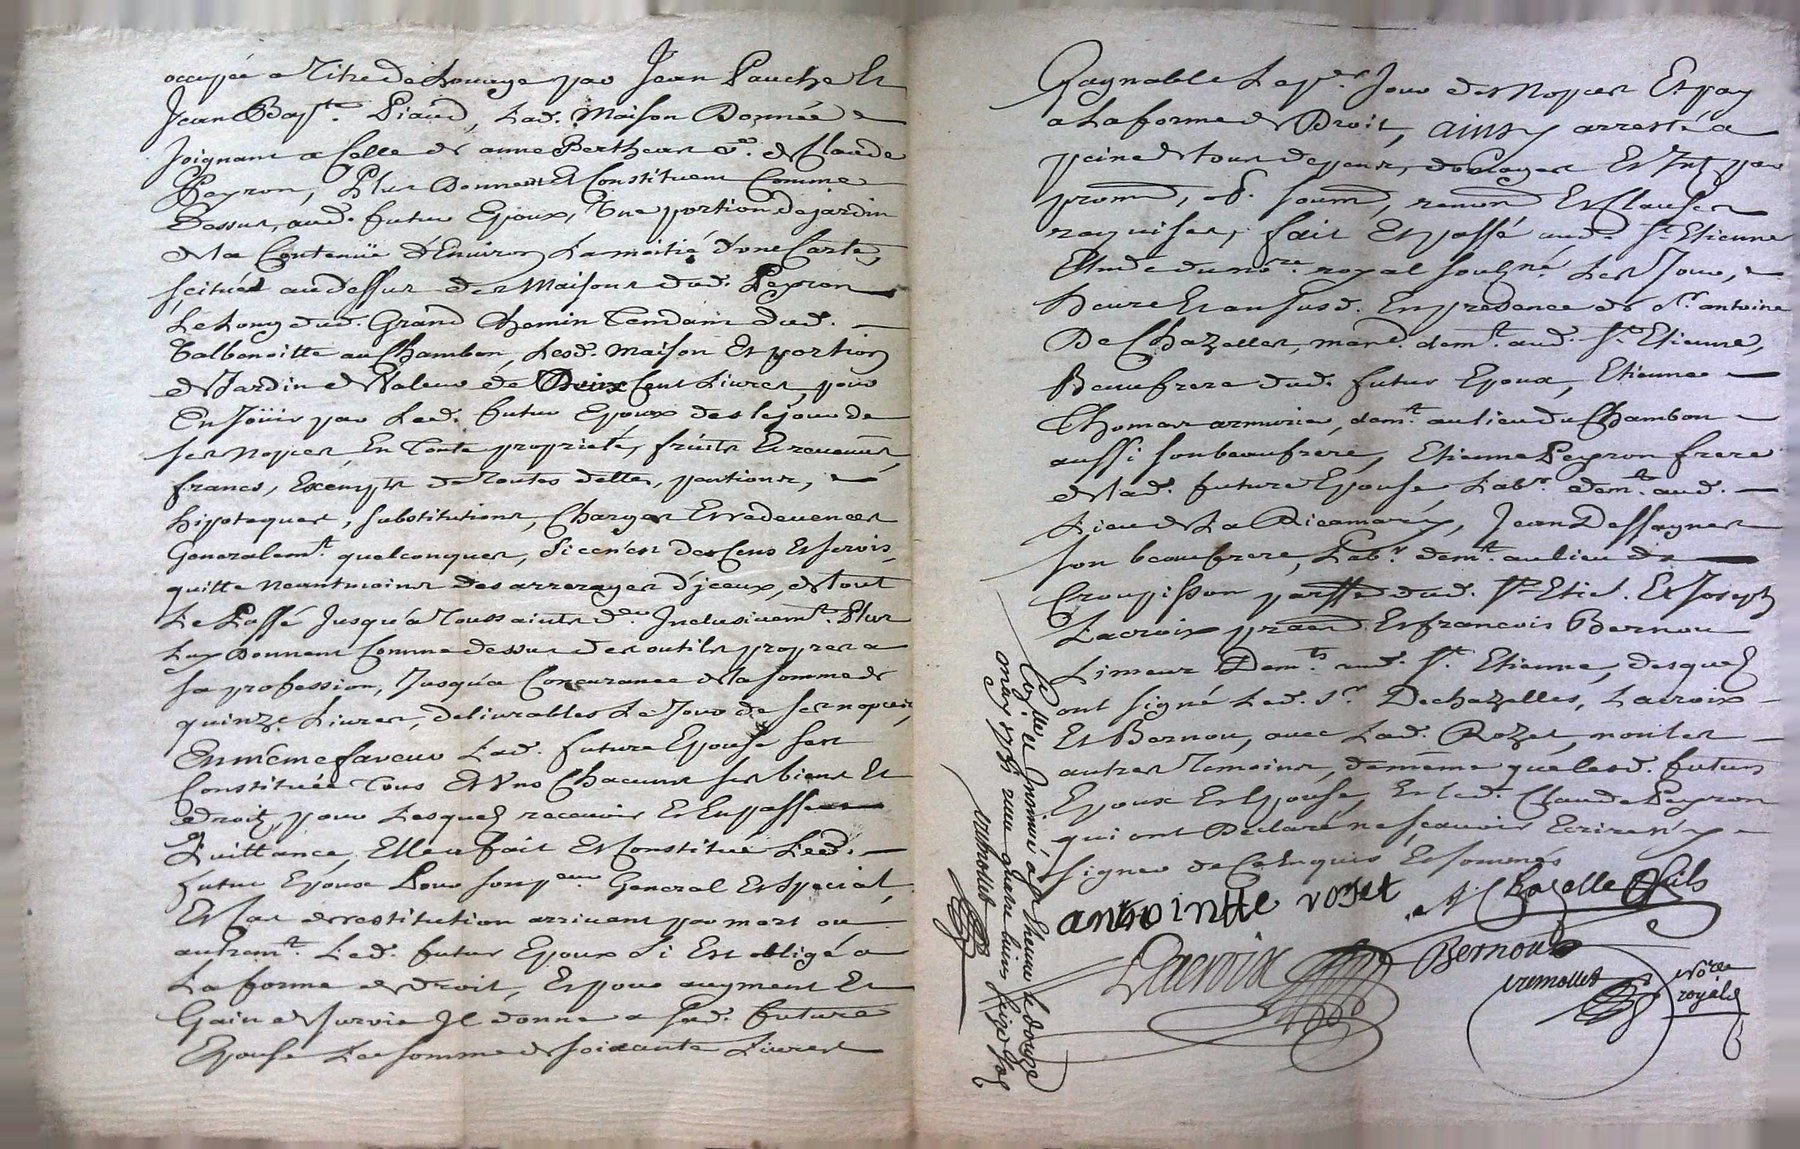 occupée a Titre de Louage par Jean Pauche Et
Jean Bapt. Piaud, Lad. Maison Donnée
Joignant a Celle de anne Bertheas v.e de Claude
Peyron, Plus Donnent Et Constituent Comme
Dessus, aud. futur Epoux, Une portion de jardin
de la Contenüe d'Environ La moitié d'une Carte,
scituée au dessus des Maisons dud. Peyron
Le Long dud. Grand Chemin Tendant dud.
Valbenoitte au Chambon, Lesd. Maison Et portion
de Jardin de Valeur de Deux Cent Livres, pour
En Joüir par Led. futur Epoux des le jour de
ses nopces, En Toute proprieté, fruits Et revenus,
francs, Exempts de Toutes dettes, pentions,
hipoteques, substitutions, Charges Et redevences
Generalemt. quelconques, si ce n'est des Cens Et servis,
quitte neantmoins des arrerages d'jceux, de tout
Le Passé Jusqu'a Toussaints der. Inclusivemt. Plus
Luy Donnent Comme dessus des outils propres a
sa profession, Jusqu'a Concurance de la somme de
quinze Livres, delivrables Le Jour de ses nopces,
En même faveur Lad. future Epouse s'est
Constituée Tous Et Uns Chacuns ses biens Et
droits, pour Lesquels recevoir Et En passer
Quittance, Elle a fait Et Constitué Led.
futur Epoux Pour son pr.eur General Et special,
Et Cas de restitution arrivant par mort ou
autremt. Led. futur Epoux s'i Est obligé a
La forme de droit, Et pour augment Et
Gain de survie Il donne a Lad. future
Epouse La somme de soixante Livres
Gagnable Le pr. Jour des Nopces Et pay
a La forme de Droit, ainsy arresté a
peine de tous depens, domages Et Int. par
prom, ob. soum, renon Et Clauses
requises, fait Et passé aud. St. Etienne
Etude du no.re royal soulsné Les Jour,
heure Et an susd. En presence de sr. antoine
De Chazelles, march. demt. aud. St. Etienne,
Beaufrere dud. futur Epoux, Etienne
Thomas armurier, demt. au lieu du Chambon
aussi son beaufrere, Etienne Peyron frere
de lad. future Epouse Labr. demt. aud.
Lieu de La Ricamarie, Jean Dessagnes
son beaufrere, Labr. demt. au lieu de
Croupisson parsse dud. St. Etie. Et Joseph
Lacroix prat. Et francois Bernou
Limeur Demts. aud. St. Etienne, desquels
ont signé Led. sr. Dechazelles, Lacroix
Et Bernou, avec Lad. Rozet, non les
autres Temoins, de même que lesd. futurs
Epoux Et Epouse, Et led. Claude Peyron
qui ont Declaré ne scavoir Ecrire n'y
signer de Ce Enquis Et sommés
antointte roset
A Chazelle fils
Lacroix
Bernou
tremollet
no.re
royal
Con.llé et Insinué a St. Etienne le douze
may 1751 recu quatre livres seize sols
tremollet